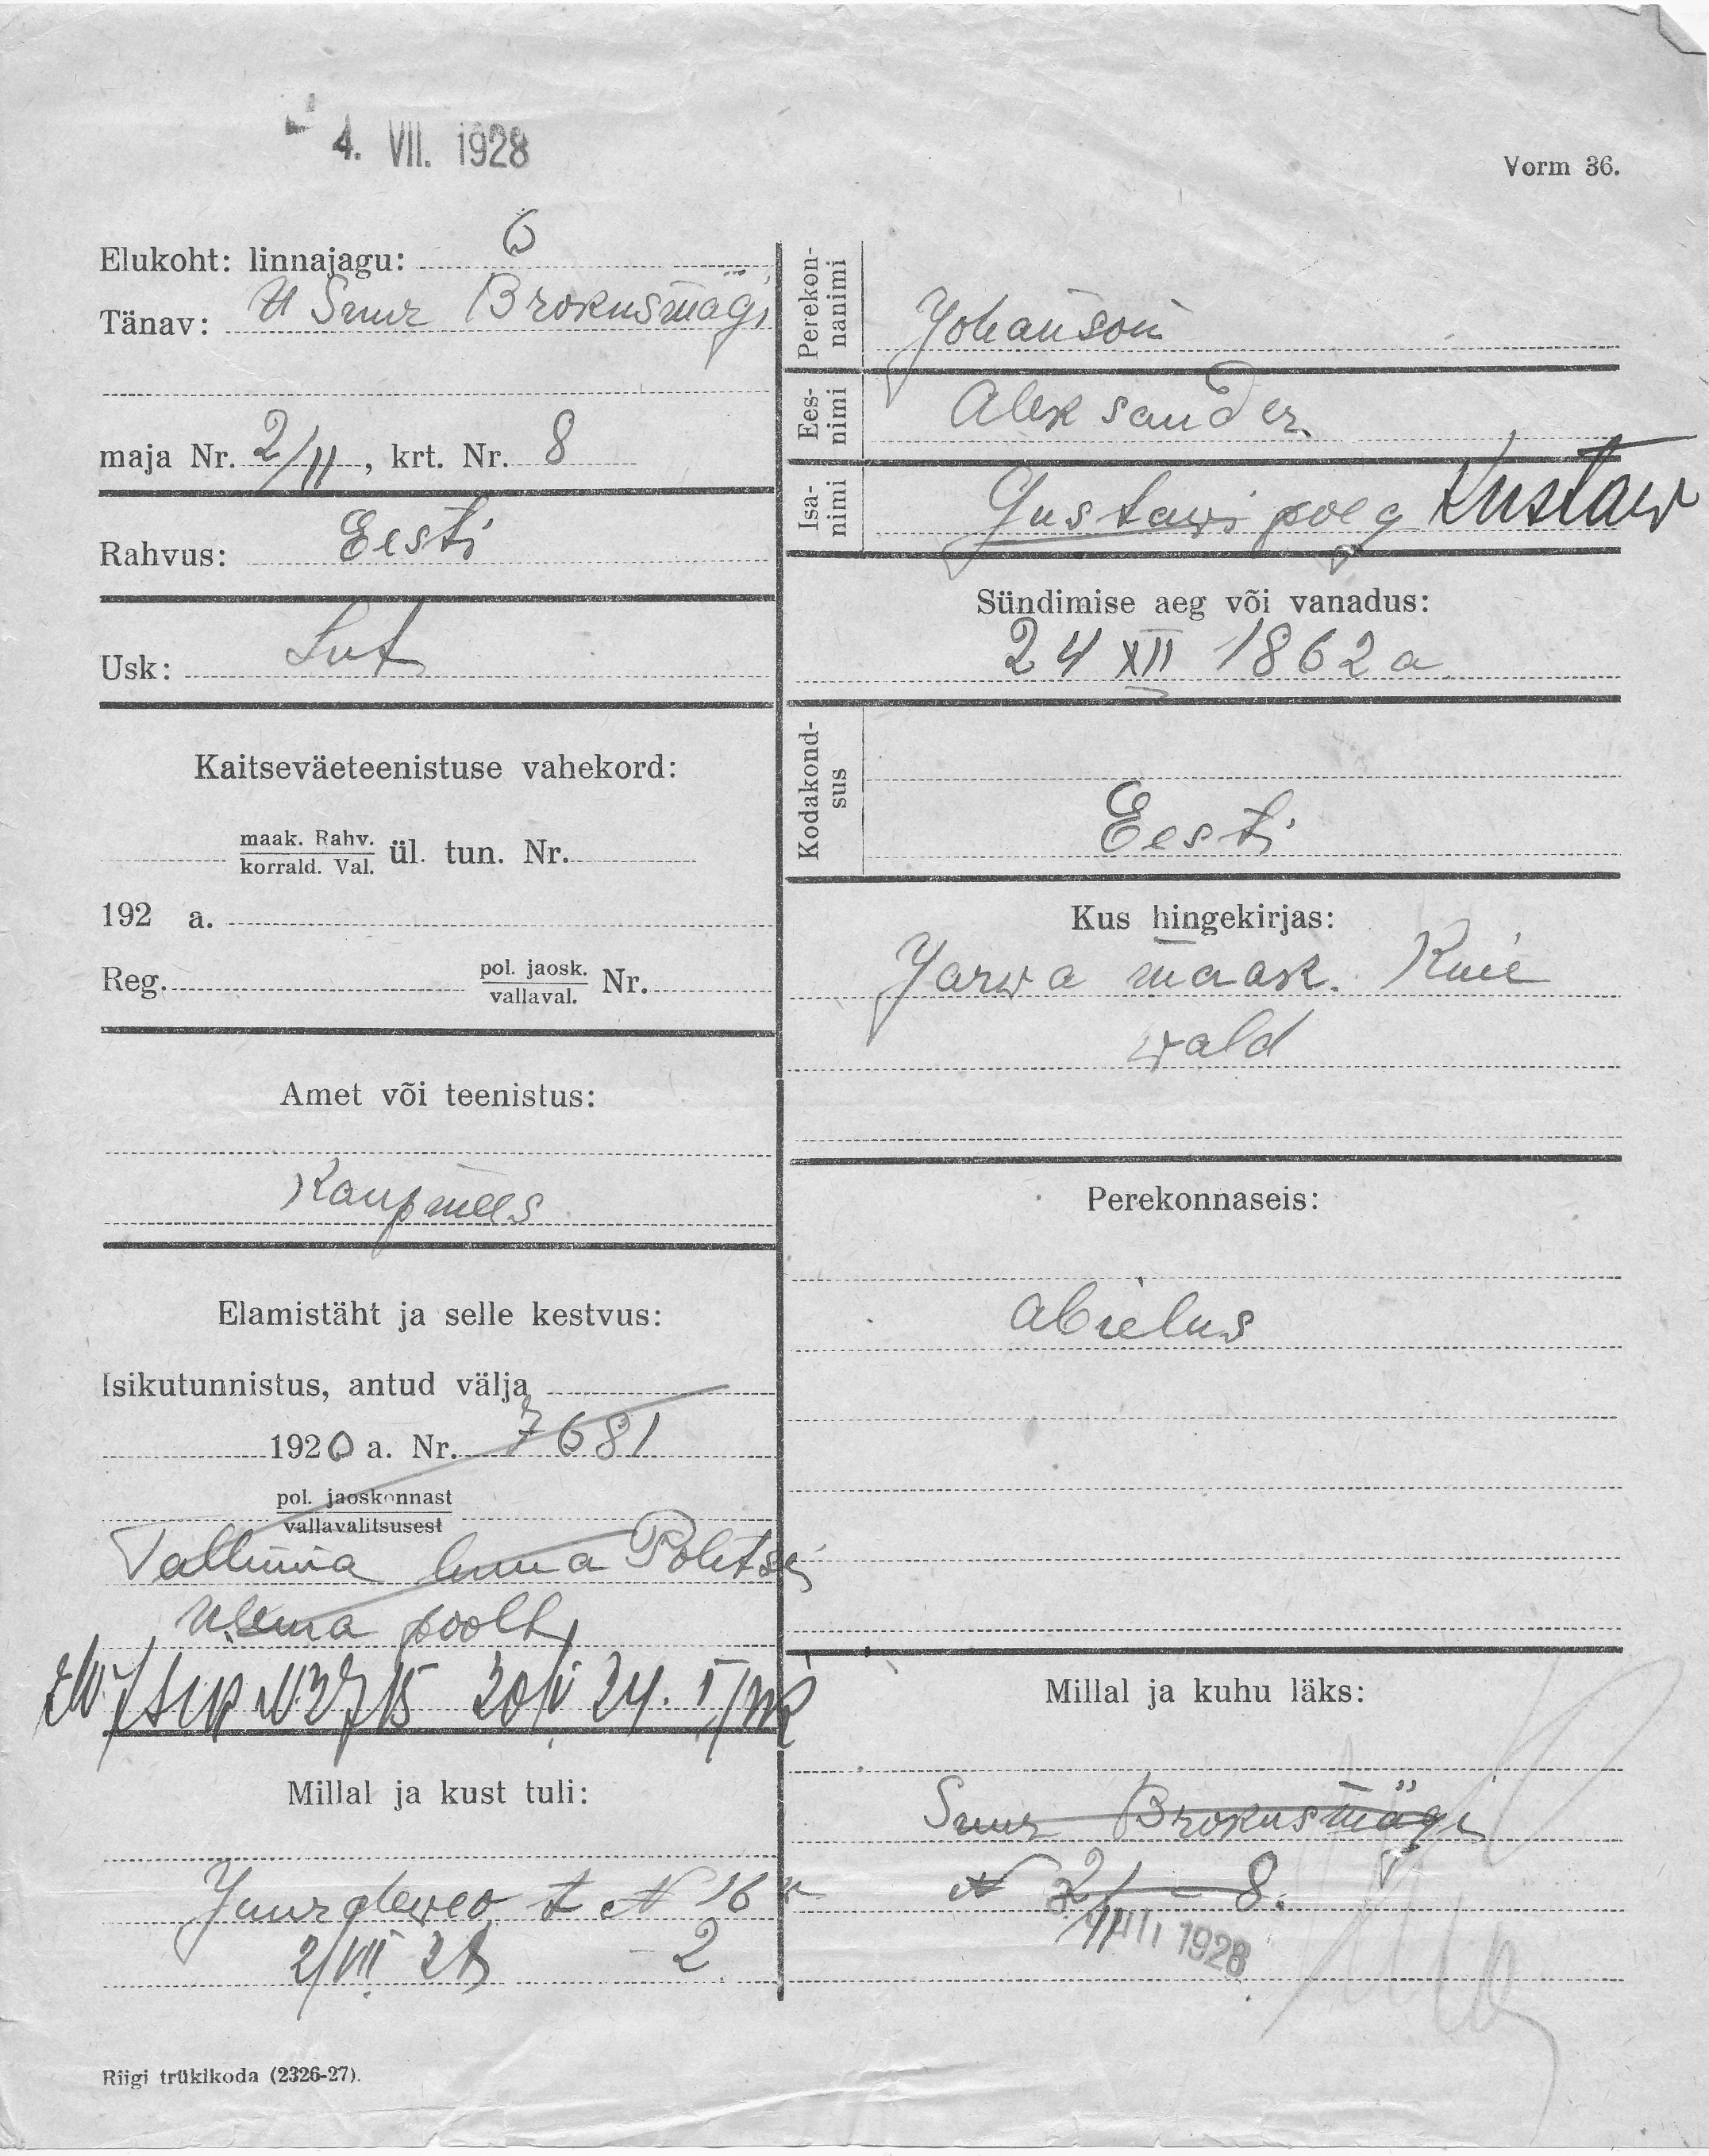 4. VII. 1928
Vorm 36.
Elukoht: linnajagu: 6
Tänav: Suur Brokusmägi
maja Nr. 2/II, krt. Nr. 8
Rahvus: Eesti
Usk: Lut
Kaitseväeteenistuse vahekord:
maak. Rahv.
korrald. Val. ül. tun. Nr.
192 a.
Reg. pol. jaosk.
vallaval. Nr.
Amet või teenistus:
Kaupmees
Elamistäht ja selle kestvus:
Isikutunnistus, antud välja
1920 a. Nr. 7681
pol. jaoskonnast
vallavalitsusest
Tallinna linna Politsei
ülema poolt
20/V 24.
Millal ja kust tuli:
t N 16
2/VII 28 - 2
Riigi trükikoda (2326-27).
Perekon-
nanimi
Johanson
Ees-
nimi
Aleksander
Isa-
nimi
Gustawi poeg Kustaw
Sündimise aeg või vanadus:
24 XII 1862 a
Kodakond-
sus
Eesti
Kus hingekirjas:
Jarwa maak.
wald
Perekonnaseis:
abielus
Millal ja kuhu läks:
Suur Brokusmägi
N 2/II - 8.
1928